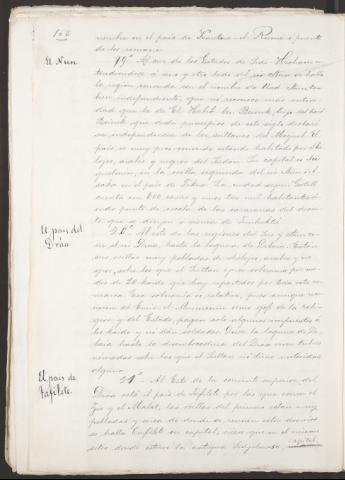 nombre en el pais de Kantara-el-Rumi ó puente
de los romanos.
El Nun
19º Al sur de los Estados de Sidi-Hescham
extendiendose á uno y otro lado del rio Nun se halla
la region conocida con el nombre de Uad Nun tam-
bien independiente, que no reconoce mas autori-
dad que la de El Habib ben Beiruk, hijo del jeil
Beiruk que desde principios de este siglo declaró
se independiente de los sultanes del Mogreb. El
pais es muy poco conocido estando habitado por che-
lojes, árabes y negros del Sudan. Su capital es
en la orilla izquierda del rio
en el pais de Tekna. La ciudad segun Gatell
cuenta con 600 casas y unos tres mil habitantes si
endo punto de escala de las caravanas del desier-
to que se dirijen ó vienen de Timbuktú.
El pais del
Dráa
20º Al este de las regiones del Sus y Nun cor-
re el rio Draa, hasta la laguna de Debaia. Están
sus orillas muy pobladas de chelojes, árabes y ne-
gros, sobre los que el Sultan ejerce soberania por me-
dio de 20 kaids que hay repartidos por toda esta co-
marca. Esa soberania es relativa, pues aunque reco-
nocen al Emir el Mumenin como gefe de la reli-
gion y del Estado, pagan solo algunos impuestos á
los kaids y no dan soldados. Desde la laguna de De-
baia hasta la desembocadura del Draa viven tribus
nómadas sobre las que el Sultan no tiene autoridad
alguna.
El pais de
Tafilete.
21º Al Este de la corriente superior del
Draa está el pais de Tafilete por los que corren el
Ziz y el las orillas del primero están muy
pobladas y cerca de donde se reunen estos dos rios
se halla Tafilete su capital, casi que en el mismo
sitio donde estuvo la antigua Sidjilmesa, capital